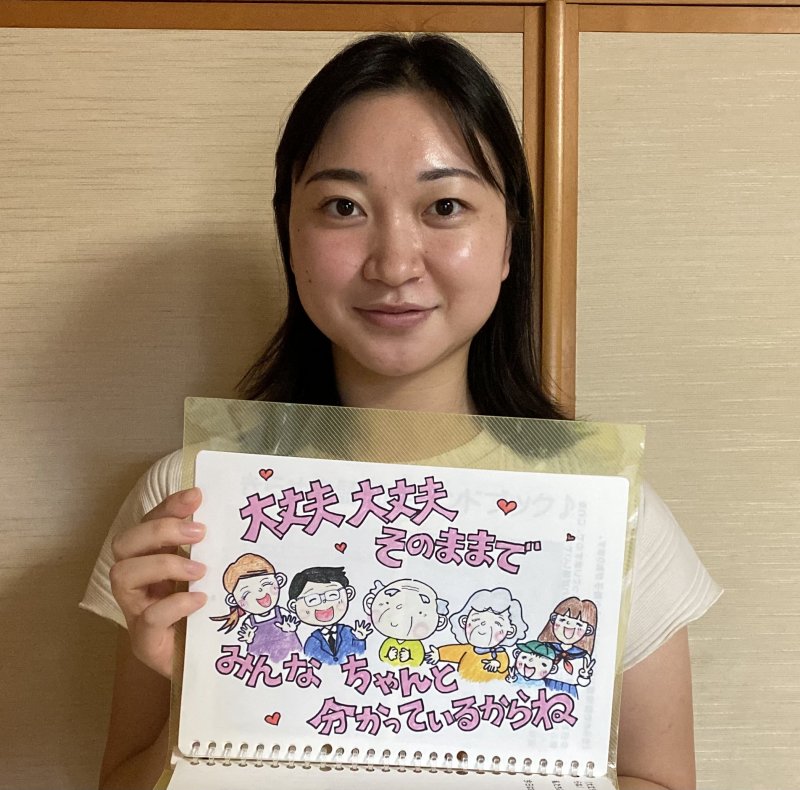 大丈夫 大丈夫
そのままで
みんな ちゃんと
分かっているからね